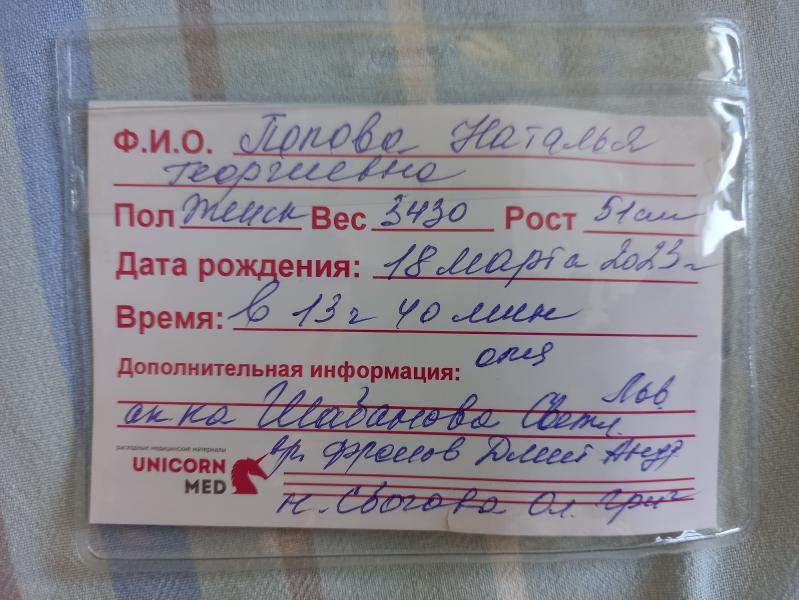 Ф.И.О. Попова Наталья
Георгиевна
Пол Женск Вес 3430 Рост 51 см
Дата рождения: 18 марта 2023 г
Время: в 13 г 40 мин
Дополнительная информация:
Льв.
ак-ка Шабанова Светл.
расходные медицинские материалы
UNICORN
MED
вр. Фролов Дмит Андр
н. Ол. Григ